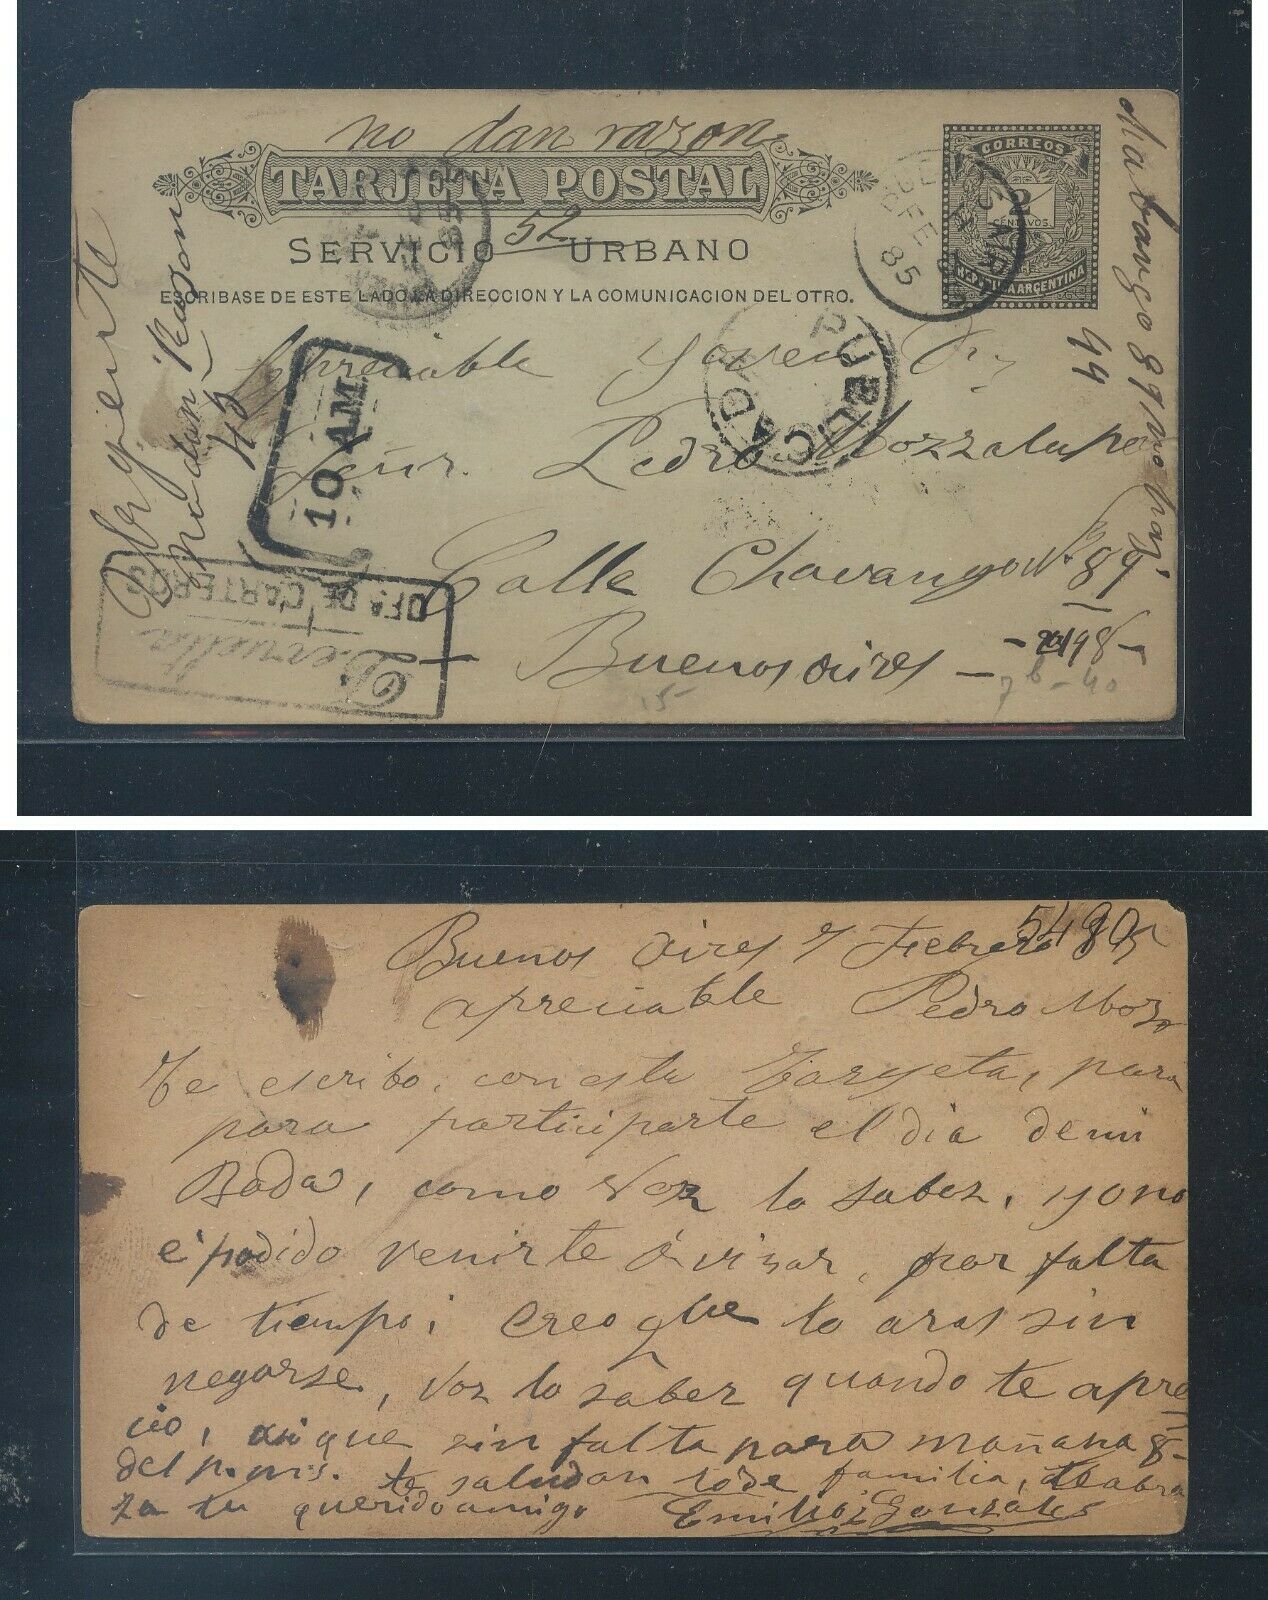 no dan razon
TARJETA POSTAL
52
SERVICIO URBANO
ESCRIBASE DE ESTE LADO LA DIRECCION Y LA COMUNICACION DEL OTRO.
CORREOS
2
CENTAVOS
REPUBLICA ARGENTINA
FE
85
no dan Razon
45
44
10 AM
PUBLICADA
OFA. DE CARTEROS
Devuelta
Apreciable
Señr. Pedro
Calle Chavango No. 89
Buenos aires
15
Buenos Aires 7 Febrero
5480
apreciable Pedro Mozo
Te escribo, con esta Targeta, para
para participarte el dia de mi
Boda, como vos lo saber, y yo no
e podido venirte á vizar, por falta
de tiempo; Creo que lo aras sin
negarse, voz lo saber quando te apre
cio, asi que sin falta para mañana 8
del p. mis. te saludan tode familia, te abra
za tu querido amigo Emilio Gonzales